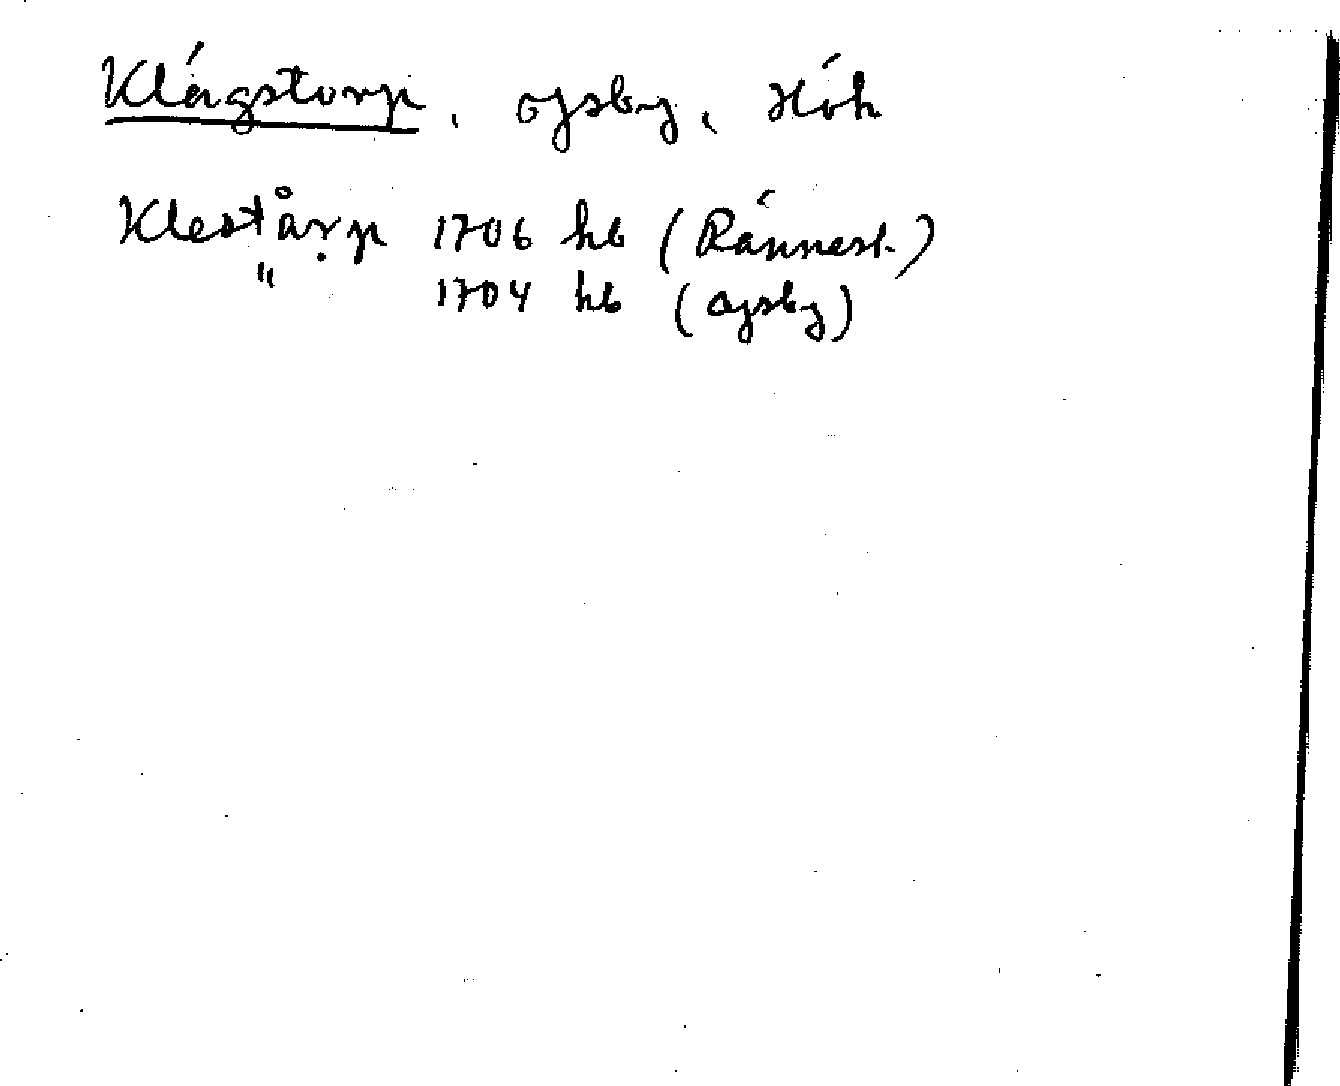 Klägstorp, Ysby, Hök
Klestårp 1706 hb (Rännesl.)
" 1704 hb (Ysby)